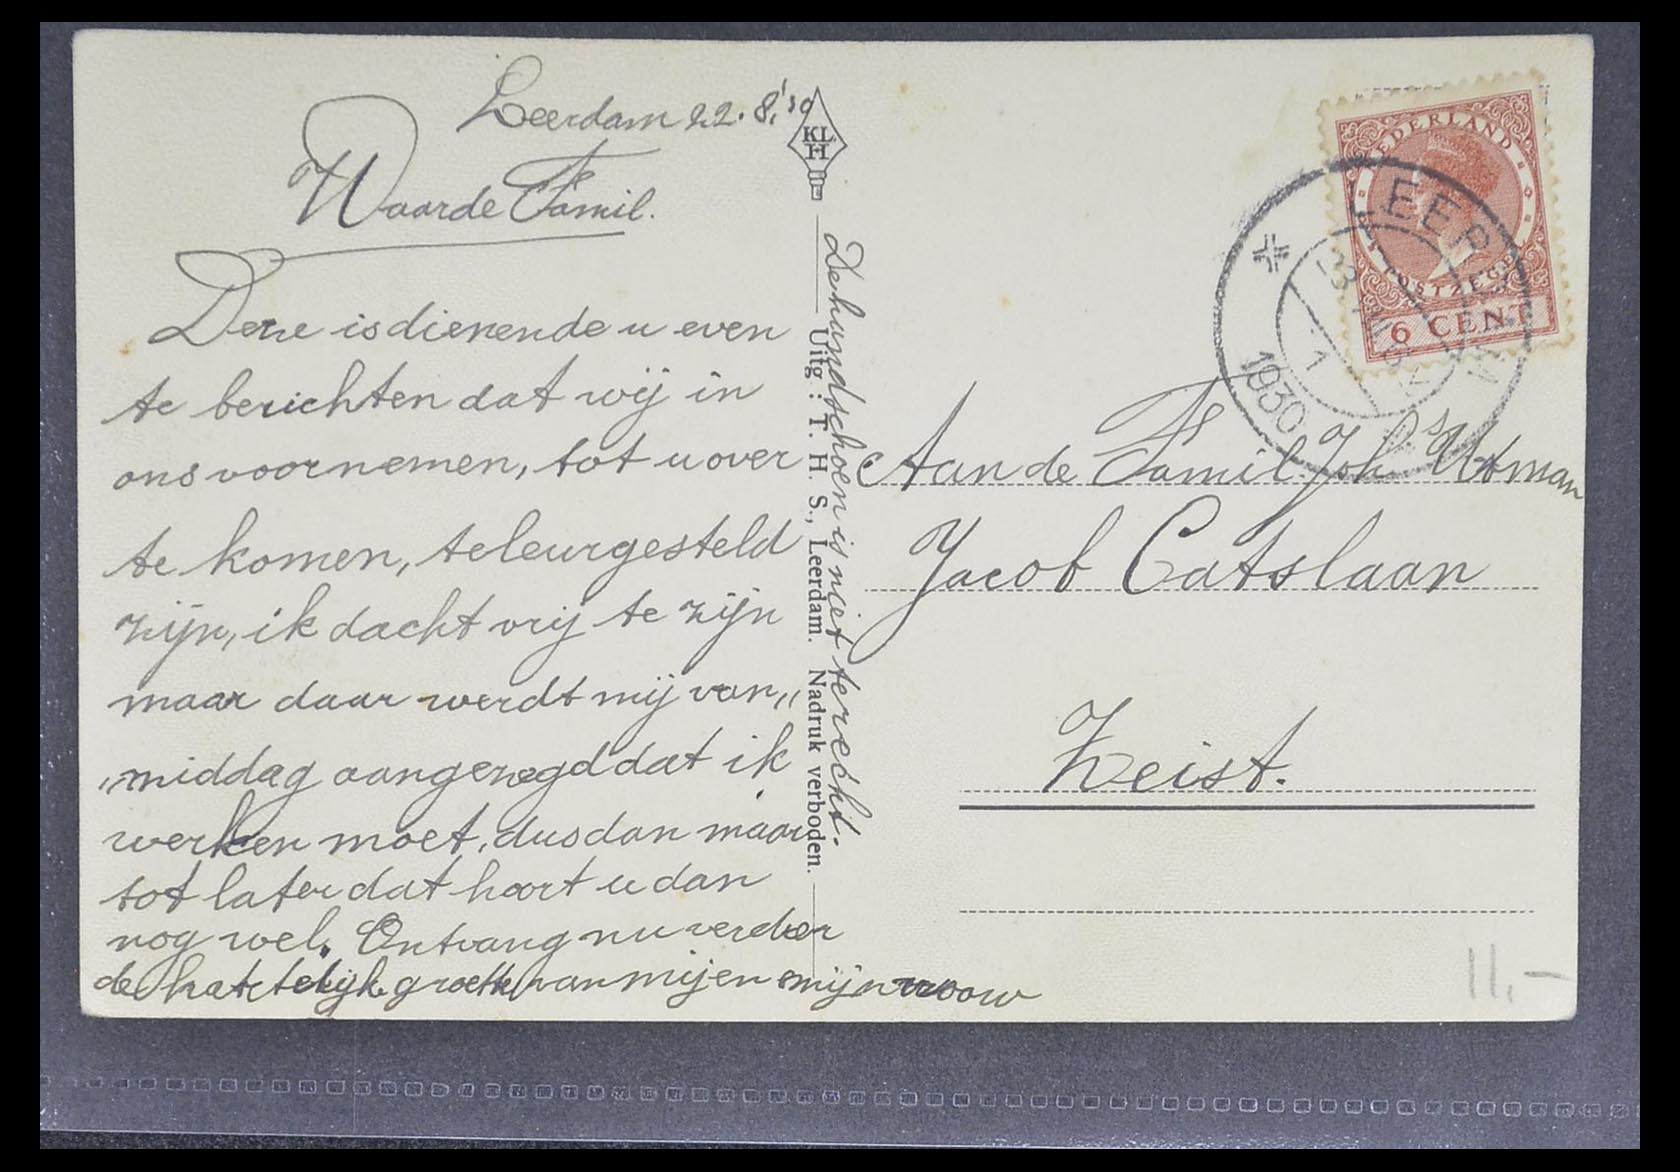 Leerdam 22.8.'30
Waarde Famil.
Deze is dienende u even
te berichten dat wij in
ons voornemen, tot u over
te komen, teleurgesteld
zijn, ik dacht vrij te zijn
maar daar werdt mij van,,
,,middag aangezegd dat ik
werken moet, dus dan maar
tot later dat hoort u dan
nog wel. Ontvang nu verder
de hartelijk groette van mij en mijn vrouw
De hundschoen is niet terecht.
KL
H
Uitg : T. H. S., Leerdam. Nadruk verboden.
NEDERLAND
POSTZEGEL
6 CENT
LEERDAM
1
1930
Aan de Famil. Joh
Jacob Catslaan
Zeist.
11,-